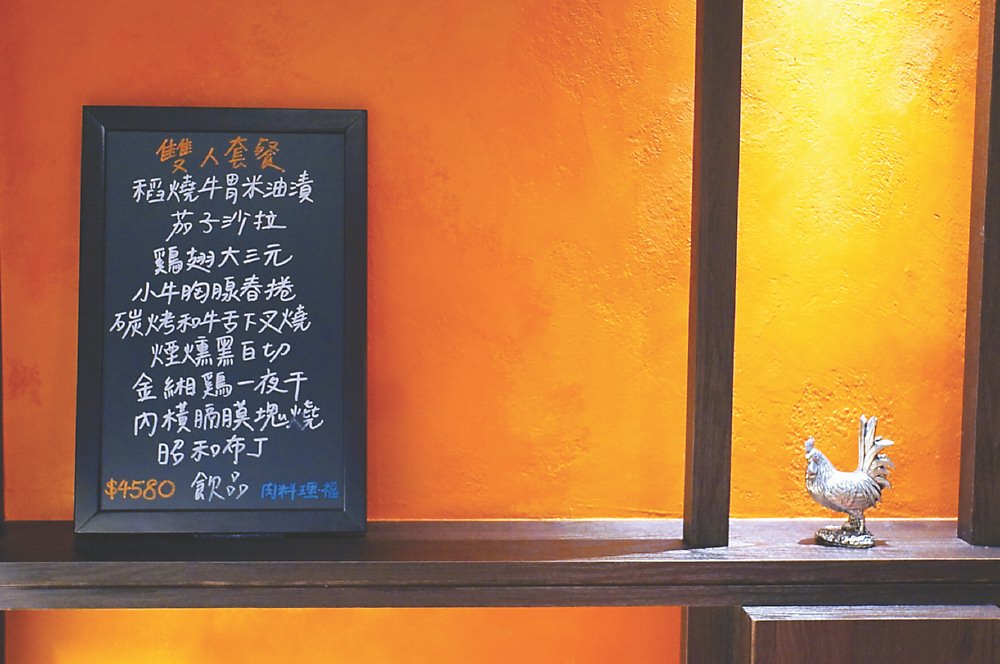 雙人套餐
稻燒牛胃米油漬
茄子沙拉
鷄翅大三元
小牛胸腺春捲
碳烤和牛舌下叉燒
煙燻黑白切
金緗鷄一夜干
內橫膈膜塊燒
昭和布丁
$4580 飲品 肉料理·福